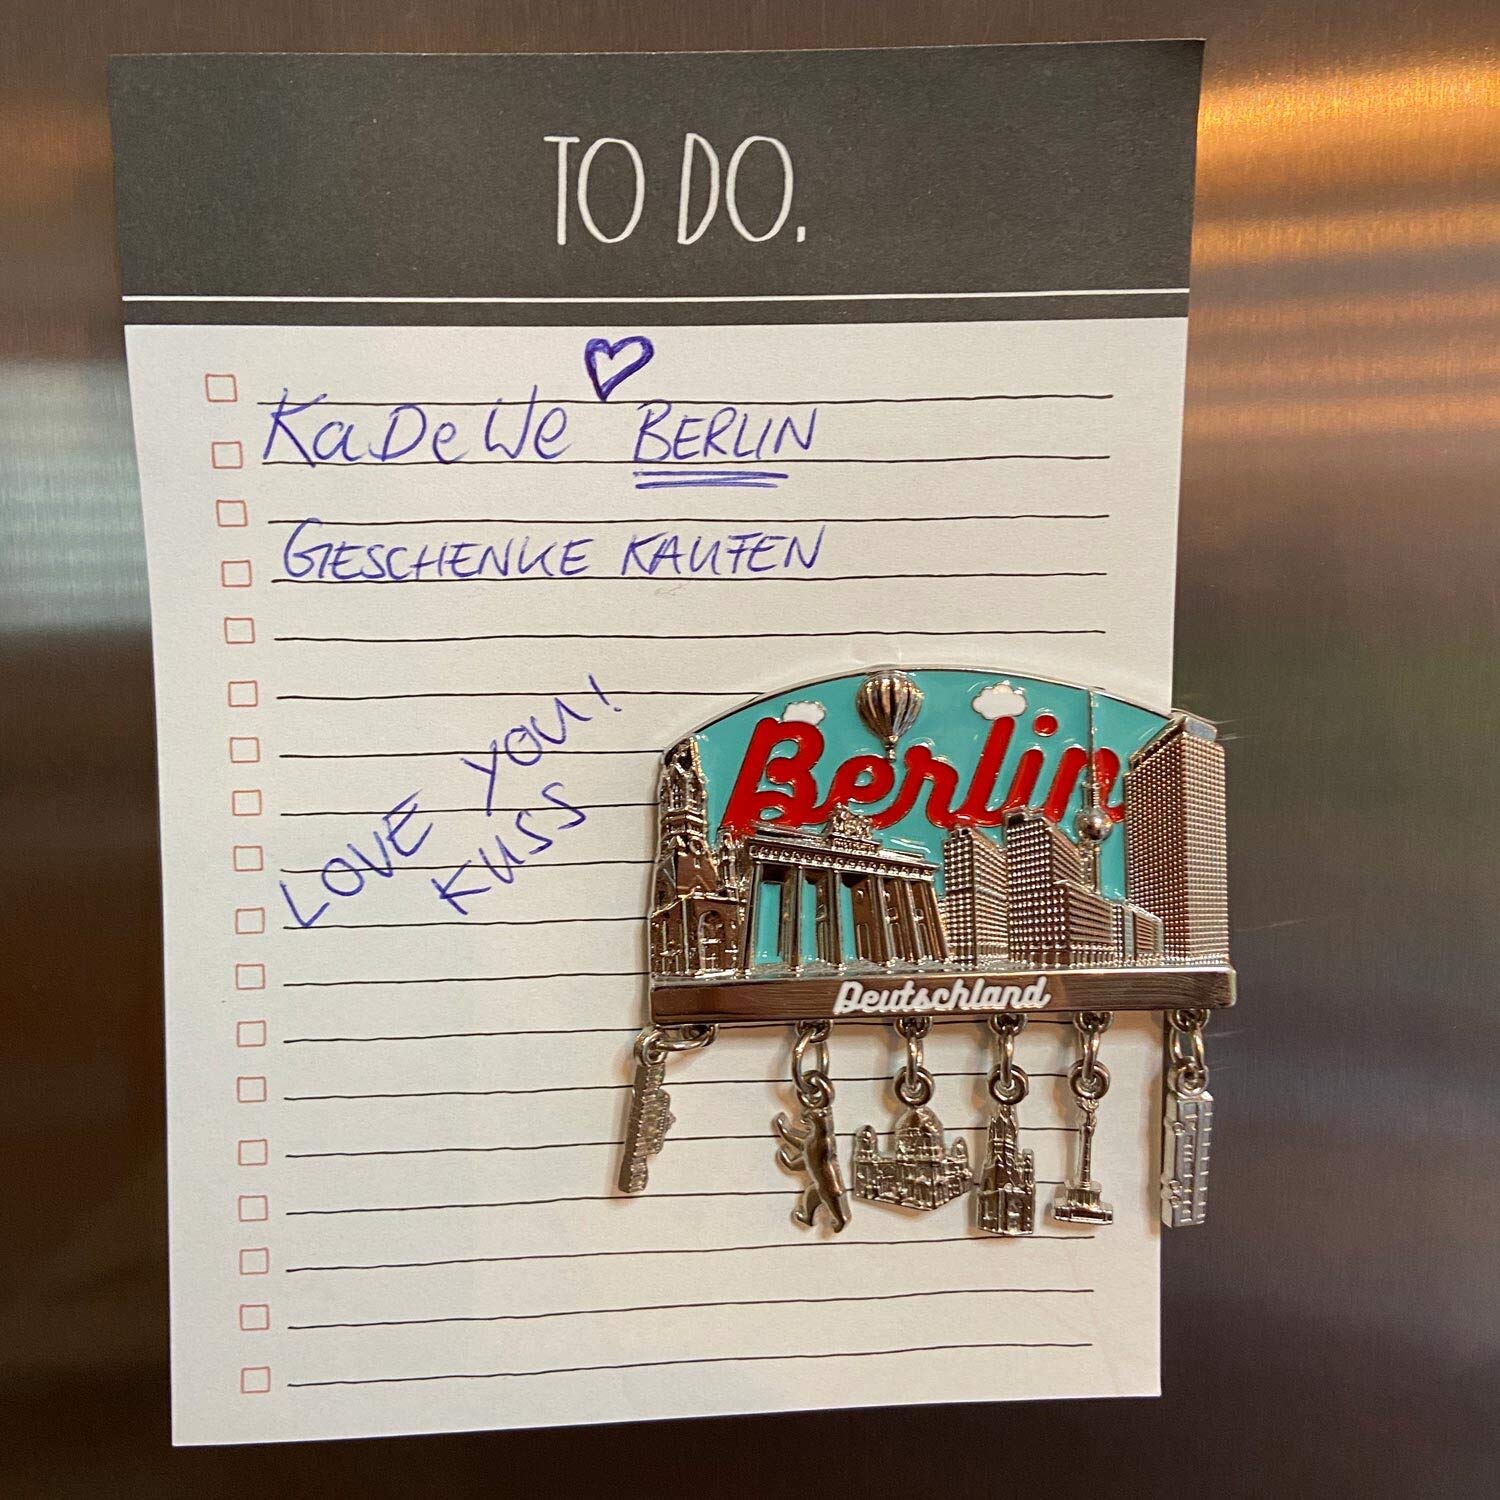 TO DO.
KaDeWe BERLIN
GESCHENKE KAUFEN
LOVE YOU!
KUSS
Berlin
Deutschland